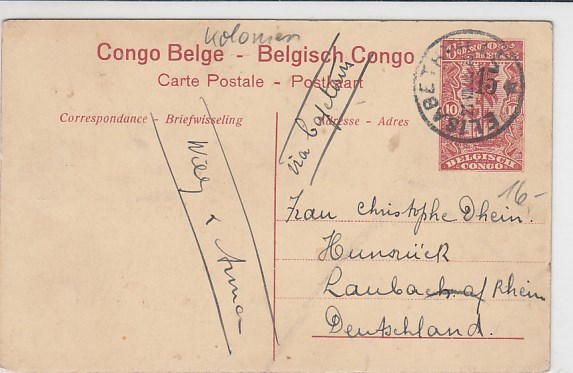 Kolonien
Congo Belge - Belgisch Congo
Carte Postale - Postkaart
Correspondance - Briefwisseling
Adresse - Adres
via Capetown
Willy & Anna
ELISABETHV
15
10
BELGISCH
CONGO
16-
Frau Christophe Dhein.
Hunsrück
Laubach a/ Rhein
Deutschland.